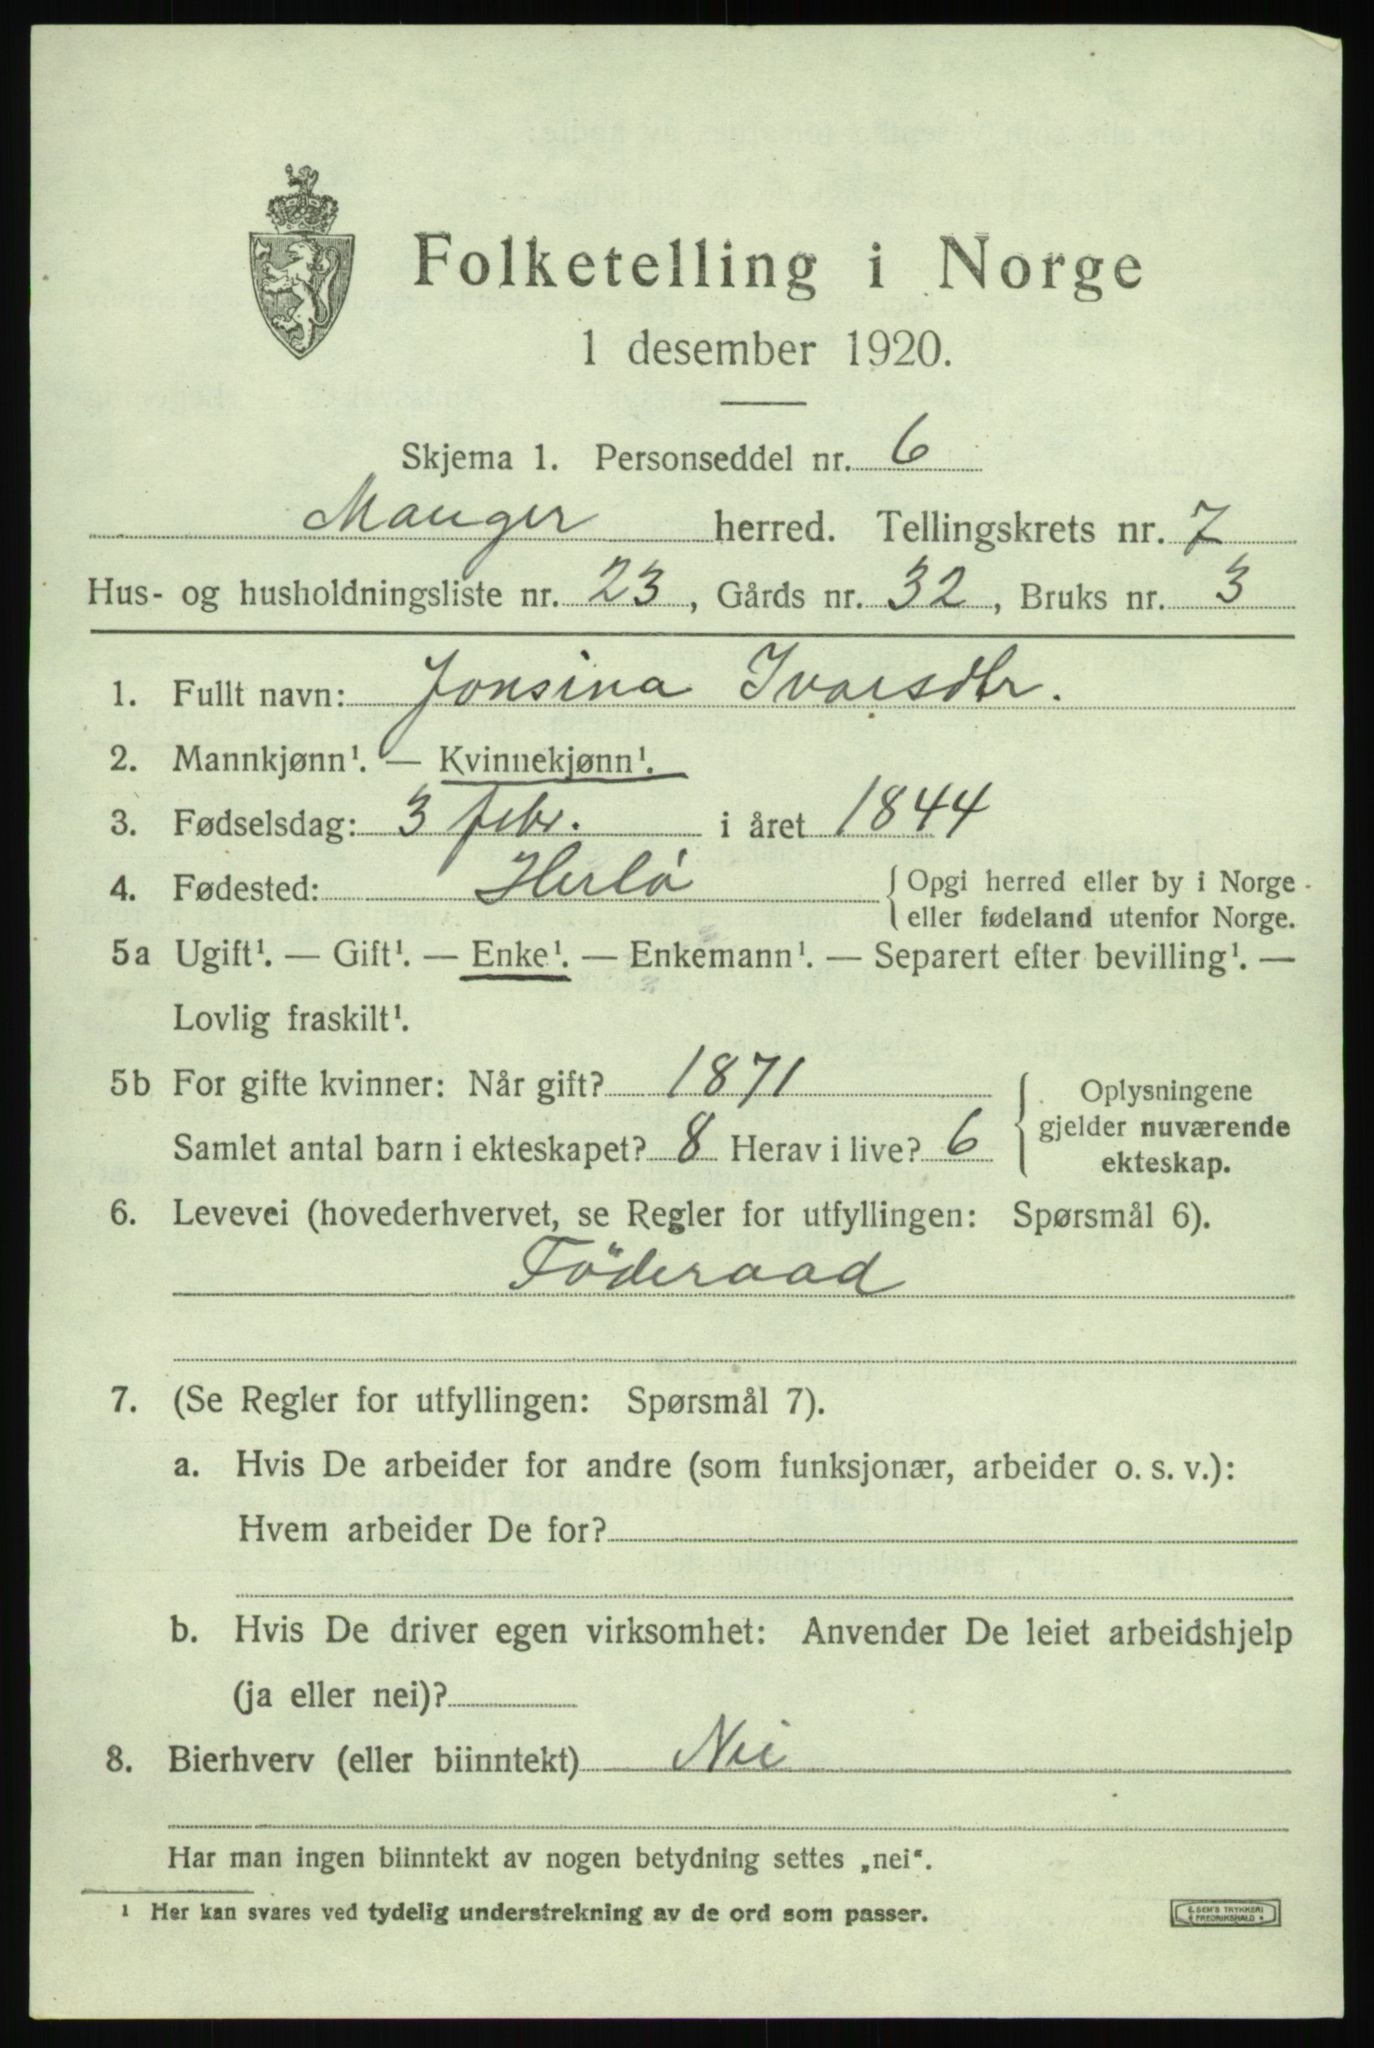 Folketelling i Norge
1 desember 1920.
Skjema 1. Personseddel nr. 6
Manger herred. Tellingskrets nr. 7
Hus- og husholdningsliste nr. 23, Gårds nr. 32, Bruks nr. 3
1. Fullt navn: Jonsina Ivarsdtr.
2. Mannkjønn¹. — Kvinnekjønn¹.
3. Fødselsdag: 3 febr. i året 1844
4. Fødested: Herlö {Opgi herred eller by i Norge
eller fødeland utenfor Norge.
5a Ugift¹. — Gift¹. — Enke¹. — Enkemann¹. — Separert efter bevilling¹. —
Lovlig fraskilt¹.
5b For gifte kvinner: Når gift? 1871
Samlet antal barn i ekteskapet? 8 Herav i live? 6
{Oplysningene
gjelder nuværende
ekteskap.
6. Levevei (hovederhvervet, se Regler for utfyllingen: Spørsmål 6).
Föderaad
7. (Se Regler for utfyllingen: Spørsmål 7).
a. Hvis De arbeider for andre (som funksjonær, arbeider o. s. v.):
Hvem arbeider De for?
b. Hvis De driver egen virksomhet: Anvender De leiet arbeidshjelp
(ja eller nei)?
8. Bierhverv (eller biinntekt) Nei
Har man ingen biinntekt av nogen betydning settes „nei“.
¹ Her kan svares ved tydelig understrekning av de ord som passer.
E. SEM'S TRYKKERI
FREDRIKSHALD